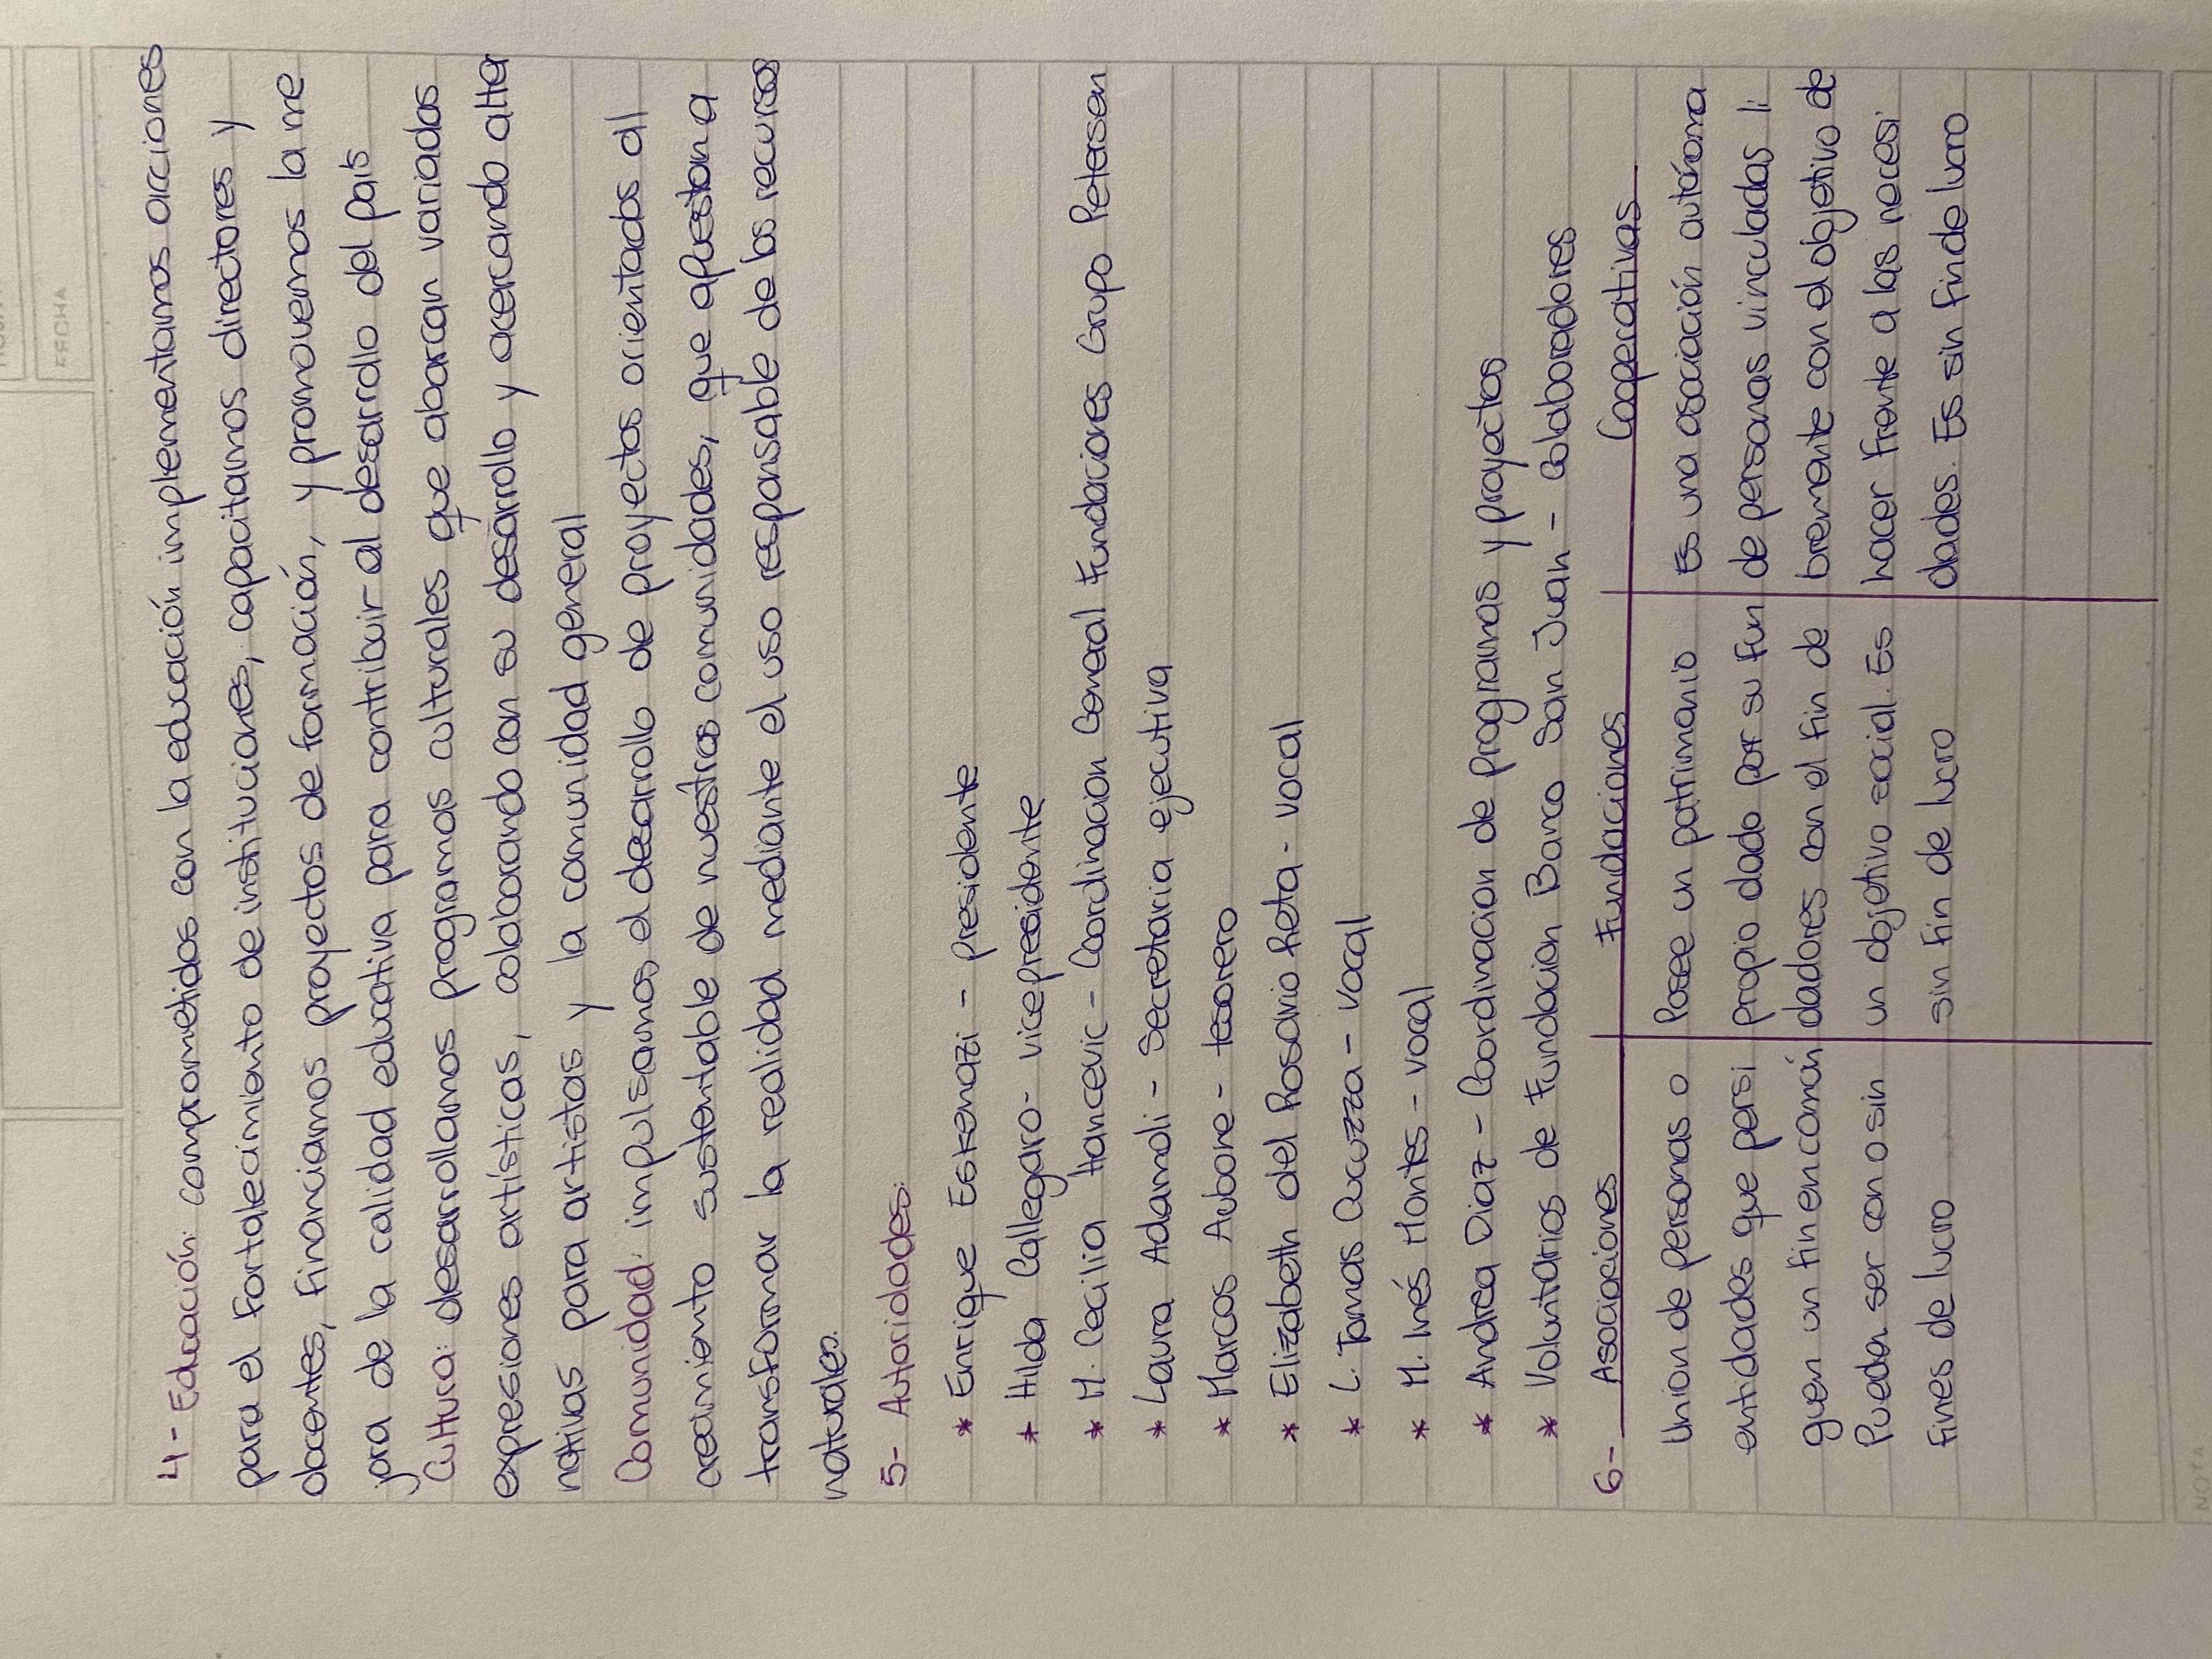 FECHA
4- Educación: comprometidos con la educación implementamos acciones
para el fortalecimiento de instituciones, capacitamos directores y
docentes, financiamos proyectos de formación, y promovemos la me
jora de la calidad educativa para contribuir al desarrollo del país
Cultura: desarrollamos programas culturales que abarcan variadas
expresiones artísticas, colaborando con su desarrollo y acercando alter
nativas para artistas y la comunidad general
Comunidad: impulsamos el desarrollo de proyectos orientados al
crecimiento sustentable de nuestras comunidades, que apuestan a
transformar la realidad mediante el uso responsable de los recursos
naturales.
5- Autoridades:
* Enrique Eskenazi - presidente
* Hilda Callegaro - vicepresidente
* M. Cecilia Hancevic - Coordinacion General Fundaciones Grupo Petersen
* Laura Adamoli - secretaria ejecutiva
* Marcos Aubone - tesorero
* Elizabeth del Rosario Reta - vocal
* L. Tomas Cucuzza - vocal
* M. Inés Montes - vocal
* Andrea Diaz - Coordinacion de programas y proyectos
* Voluntarios de Fundacion Banco San Juan - colaboradores
6- Asociaciones Fundaciones Cooperativas
Union de personas o Posee un patrimonio Es una asociación autónoma
entidades que persi propio dado por su fun de personas vinculadas li
guen un fin en común dadores con el fin de bremente con el objetivo de
Pueden ser con o sin un objetivo social. Es hacer frente a las necesi
fines de lucro sin fin de lucro dades. Es sin fin de lucro
NOTA